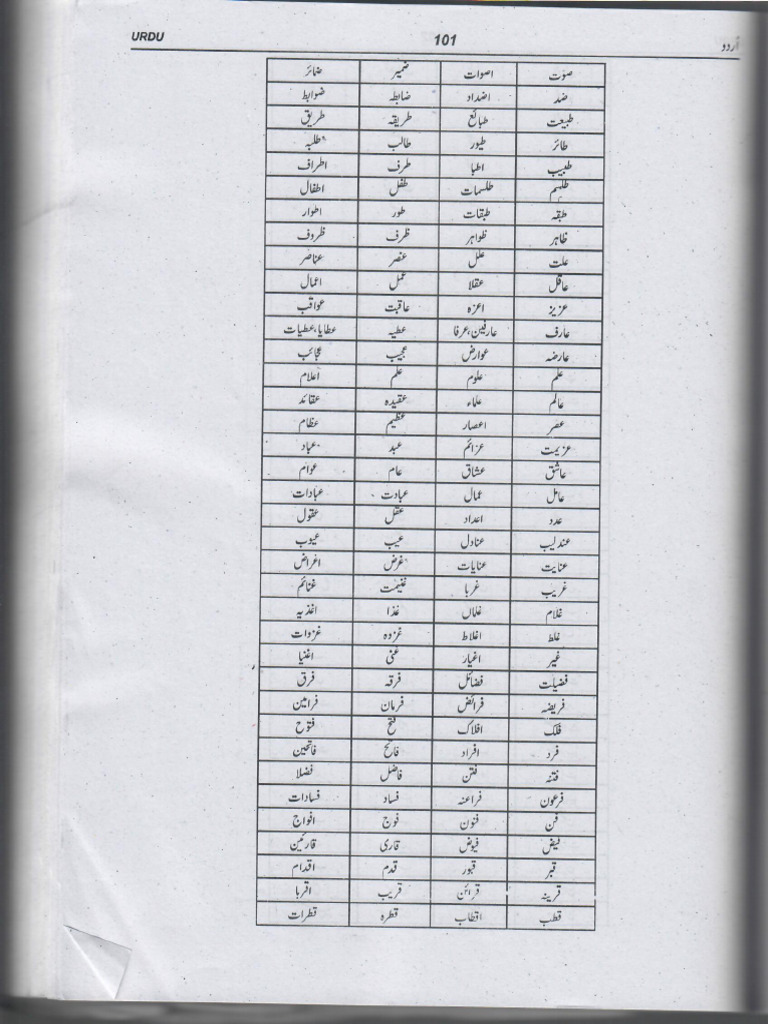 URDU 101 اُردو
صوت اصوات ضمیر ضمائر
ضد اضداد ضابطہ ضوابط
طبیعت طبائع طریقہ طریق
طائر طیور طالب طلبہ
طبیب اطبا طرف اطراف
طلسم طلسمات طفل اطفال
طبقہ طبقات طور اطوار
ظاہر ظواہر ظرف ظروف
علت علل عنصر عناصر
عاقل عقلا عمل اعمال
عزیز اعزہ عاقبت عواقب
عارف عارفین،عرفا عطیہ عطایا،عطیات
عارضہ عوارض عجیب عجائب
علم علوم علم اعلام
عالم علماء عقیدہ عقائد
عصر اعصار عظیم عظام
عزیمت عزائم عبد عباد
عاشق عشاق عام عوام
عامل عمال عبادت عبادات
عدد اعداد عقل عقول
عندلیب عنادل عیب عیوب
عنایت عنایات غرض اغراض
غریب غربا غنیمت غنائم
غلام غلماں غذا اغذیہ
غلط اغلاط غزوہ غزوات
غیر اغیار غنی اغنیا
فضیات فضائل فرقہ فرق
فریضہ فرائض فرمان فرامین
فلک افلاک فتح فتوح
فرد افراد فاتح فاتحین
فتنہ فتن فاضل فضلا
فرعون فراعنہ فساد فسادات
فن فنون فوج افواج
فیض فیوض قاری قارئین
قبر قبور قدم اقدام
قرینہ قرائن قریب اقربا
قطب اقطاب قطرہ قطرات